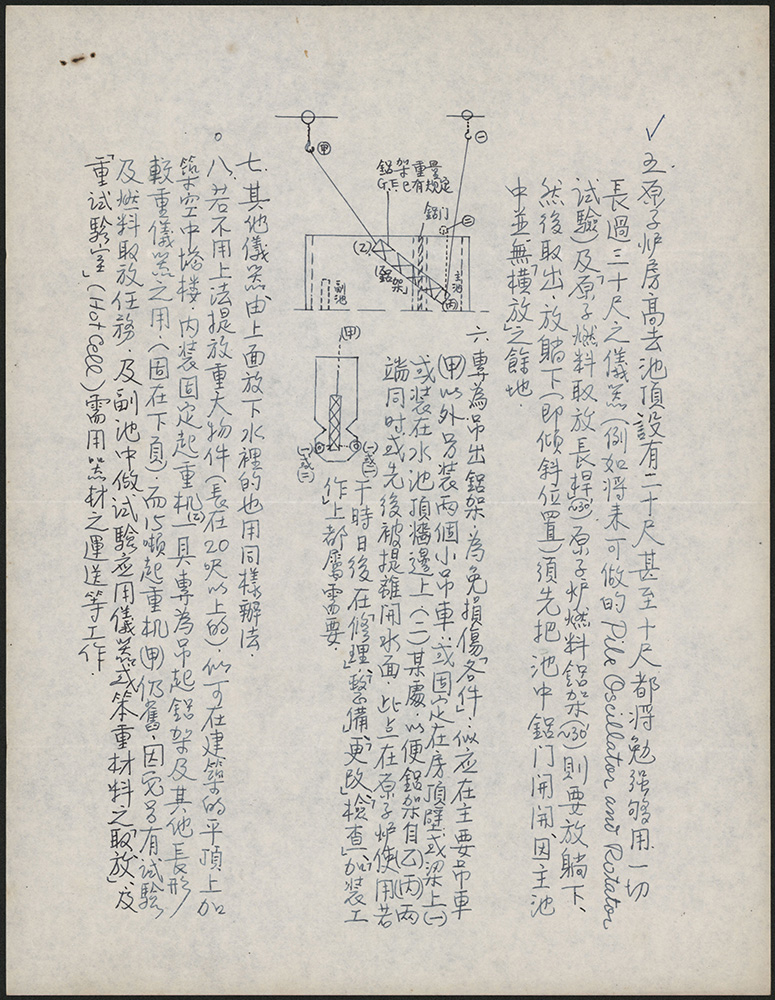 五. 原子炉房高去池頂設有二十尺甚至十尺都將勉强够用. 一切
長過三十尺之儀器 (例如將来可做的 Pile Oscillator and Rotator
試驗) 及原子燃料取放長桿(~30') 原子炉燃料鋁架(~30') 則要放躺下、
然後取出, 放躺下 (即傾斜位置) 須先把池中鋁门開開, 因主池
中並無「横放」之餘地.
㊀
甲
鋁架重量
G.E.已有規定
鋁门
㊁
(乙)
(鋁架)
副池
主池
(丙)
六. 專為吊出鋁架, 為免損傷「各件」; 似應在主要吊車
(甲) 以外另装両個小吊車; 或固定在房頂壁或梁上(一)
或装在水池頂牆邊上 (二) 某處, 以便鋁架自(乙)(丙)両
端同时或先後被提離開水面 此点在原子炉使用若
干時日後在「修理」「整備」「更改」「檢查」「加装工
作」上都屬需要.
(甲)
(一或二)
(一或二)
七. 其他儀器由上面放下水裡的也用同樣辦法.
八. 若不用上法提放重大物件 (長在20呎以上的), 似可在建築的平頂上加
築空中塔楼, 内装固定起重机(乙)一具專為吊起鋁架及其他長形
較重儀器之用. (圖在下頁). 而15噸起重机(甲)仍舊, 因它另有試驗
及燃料取放任務, 及副池中做試驗应用儀器或笨重材料之「取放」及
「重試驗室」(Hot Cell) 需用器材之運送等工作.